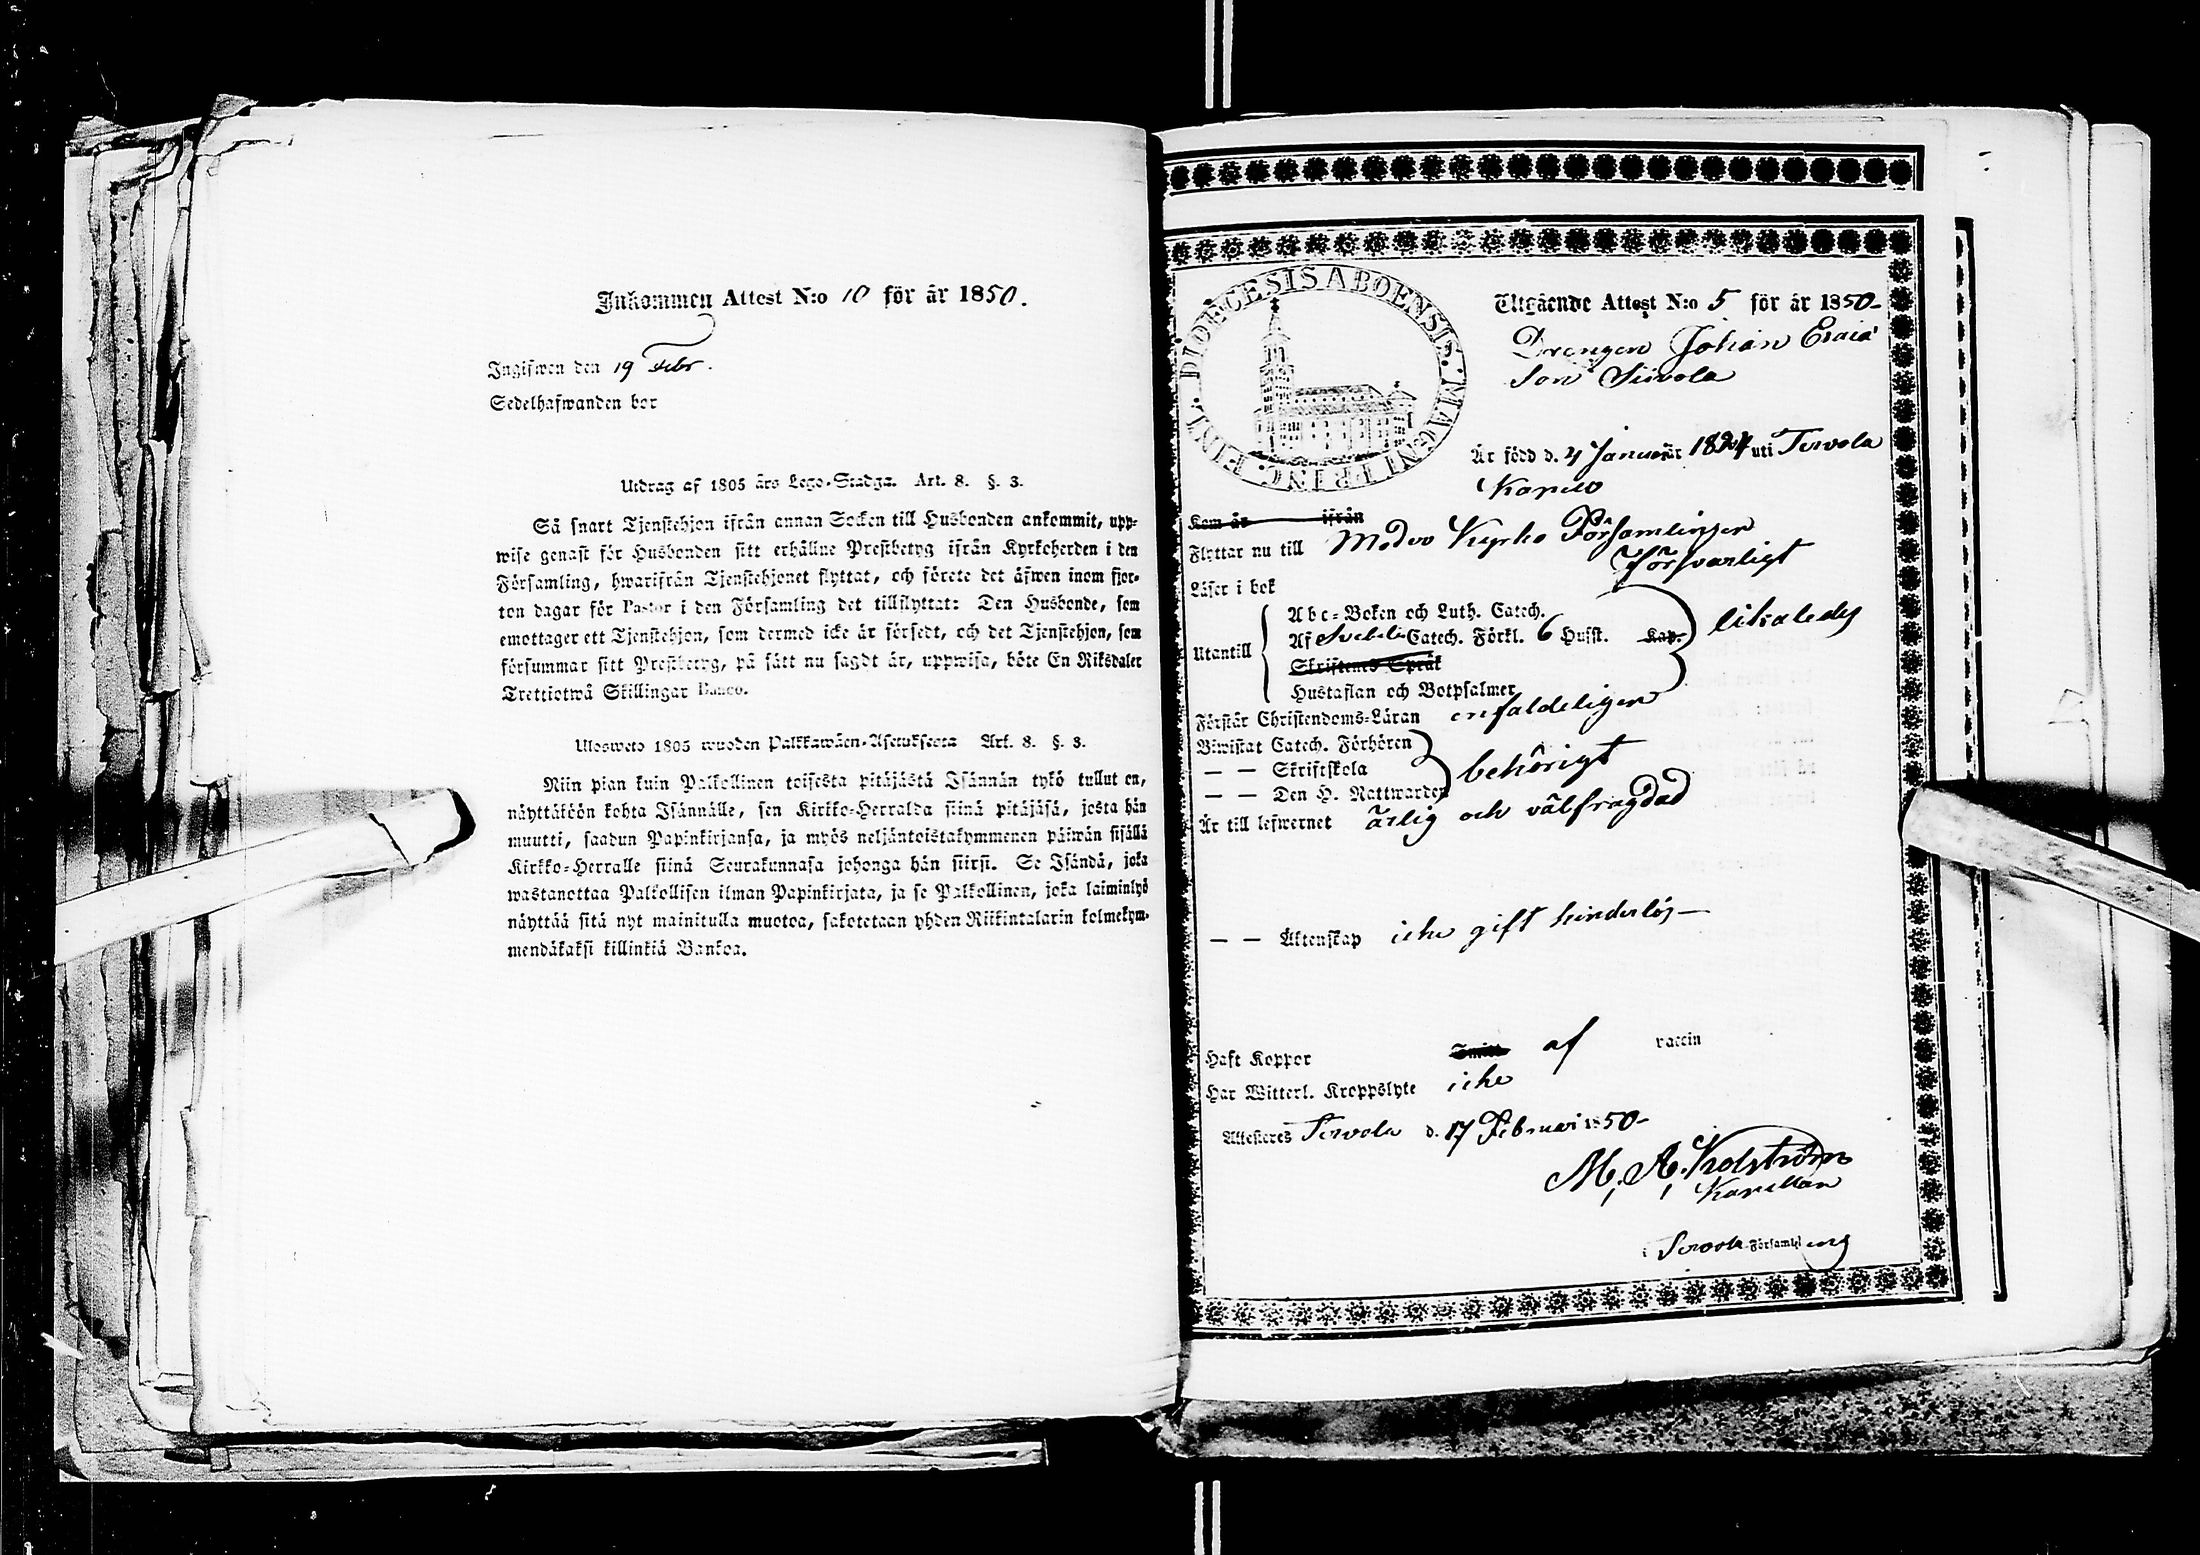 Inkommen Attest N:o 10 för år 1850.
Ingifwen den 19 Febr.
Sedelhafwanden bor
Utdrag af 1805 års Lego-Stadga. Art. 8. §. 3.
Så snart Tjenstehjon ifrån annan Socken till Husbonden ankommit, upp-
wise genast för Husbonden sitt erhållne Prestbetyg ifrån Kyrkoherden i den
Församling, hwarifrån Tjenstehjonet flyttat, och förete det äfwen inom fjor-
ton dagar för Pastor i den Församling det tillflyttat: Den Husbonde, som
emottager ett Tjenstehjon, som dermed icke är försedt, och det Tjenstehjon, som
försummar sitt Prestbetyg, på sätt nu sagdt är, uppwisa, böte En Riksdaler
Trettiotwå Skillingar Banco.
Ulosweto 1805 wuoden Palkkawäen-Asetuksesta Art. 8. §. 3.
Niin pian kuin Palkollinen toisesta pitäjästä Isännän tykö tullut on,
näyttäköön kohta Isännälle, sen Kirkko-Herralda siinä pitäjäsä, josta hän
muutti, saadun Papinkirjansa, ja myös neljäntoistakymmenen päiwän sisällä
Kirkko-Herralle siinä Seurakunnasa johonga hän siirsi. Se Isändä, joka
wastanottaa Palkollisen ilman Papinkirjata, ja se Palkollinen, joka laiminlyö
näyttää sitä nyt mainitulla muotoa, sakotetaan yhden Riikintalarin kolmekym-
mendäkaksi killinkiä Bankoa.
DIOECESIS ABOENSIS. MAGNI PRINC. FINL.
Utgående Attest N:o 5 för år 1850
Drengen Johan Esaia
Son Siivola
Är född d. 4 Januari år 1824 uti Tervola
Kapell
Kom år ifrån
Flyttar nu till Modro Kyrko Församlingen
Läser i bok försvarligt
Utantill
Abc-Boken och Luth. Catech.
Af Svebeli Catech. Förkl. 6 Hufst. Kap. likaledes
Skriftenes Språk
Hustaflan och Botpsalmer
Förstår Christendoms-Läran enfaldeligen
Biwistat Catech. Förhören
— — Skriftskola behörigt
— — Den H. Nattwarden
Är till lefwernet ärlig och välfrägdad
— — Äktenskap icke gift hinderlös
Haft Koppor af vaccin
Har Witterl. Kroppslyte icke
Attesteres Tervola d. 17 Februari 1850
M. A. Holström
Kapellan
i Tervola Församling